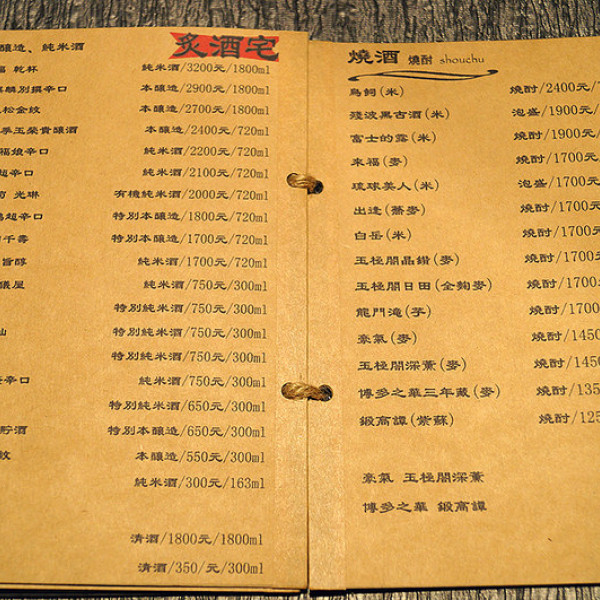 釀造、純米酒
炙酒宅
乾杯 純米酒/3200元/1800ml
別撰辛口 本釀造/2900元/1800ml
松金紋 本釀造/2700元/1800ml
季玉榮貴釀酒 本釀造/2400元/720ml
福娘辛口 純米酒/2200元/720ml
超辛口 純米酒/2100元/720ml
光琳 有機純米酒/2000元/720ml
超辛口 特別本釀造/1800元/720ml
千壽 特別本釀造/1700元/720ml
旨醇 純米酒/1700元/720ml
屋 純米酒/750元/300ml
特別純米酒/750元/300ml
特別純米酒/750元/300ml
特別純米酒/750元/300ml
辛口 純米酒/750元/300ml
特別純米酒/650元/300ml
貯酒 特別本釀造/650元/300ml
本釀造/550元/300ml
純米酒/300元/163ml
清酒/1800元/1800ml
清酒/350/元/300ml
燒酒 燒酎 shouchu
鳥飼(米) 燒酎/2400元/7
殘波黑古酒(米) 泡盛/1900元/
富士的露(米) 燒酎/1900元/
來福(麥) 燒酎/1700元/
琉球美人(米) 泡盛/1700元
出逢(蕎麥) 燒酎/1700元
白岳(米) 燒酎/1700元
玉極閣晶鑽(麥) 燒酎/1700元
玉極閣日田(全麴麥) 燒酎/1700
龍門滝(芋) 燒酎/1700
豪氣(麥) 燒酎/1450
玉極閣深薰(麥) 燒酎/1450
博多之華三年藏(麥) 燒酎/135
鍛高譚(紫蘇) 燒酎/125
豪氣 玉極閣深薰
博多之華 鍛高譚